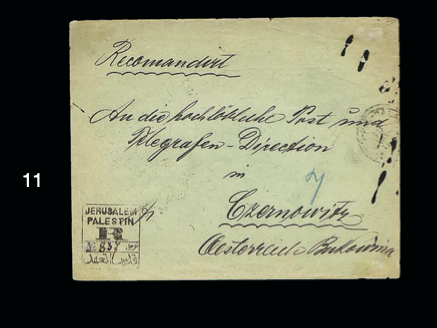 11
Recomandirt
An die hochlöbliche Post und
Telegrafen-Direction
in
Czernowitz
Oesterreich Bukowina
JERUSALEM
PALESTIN
R
№ 837